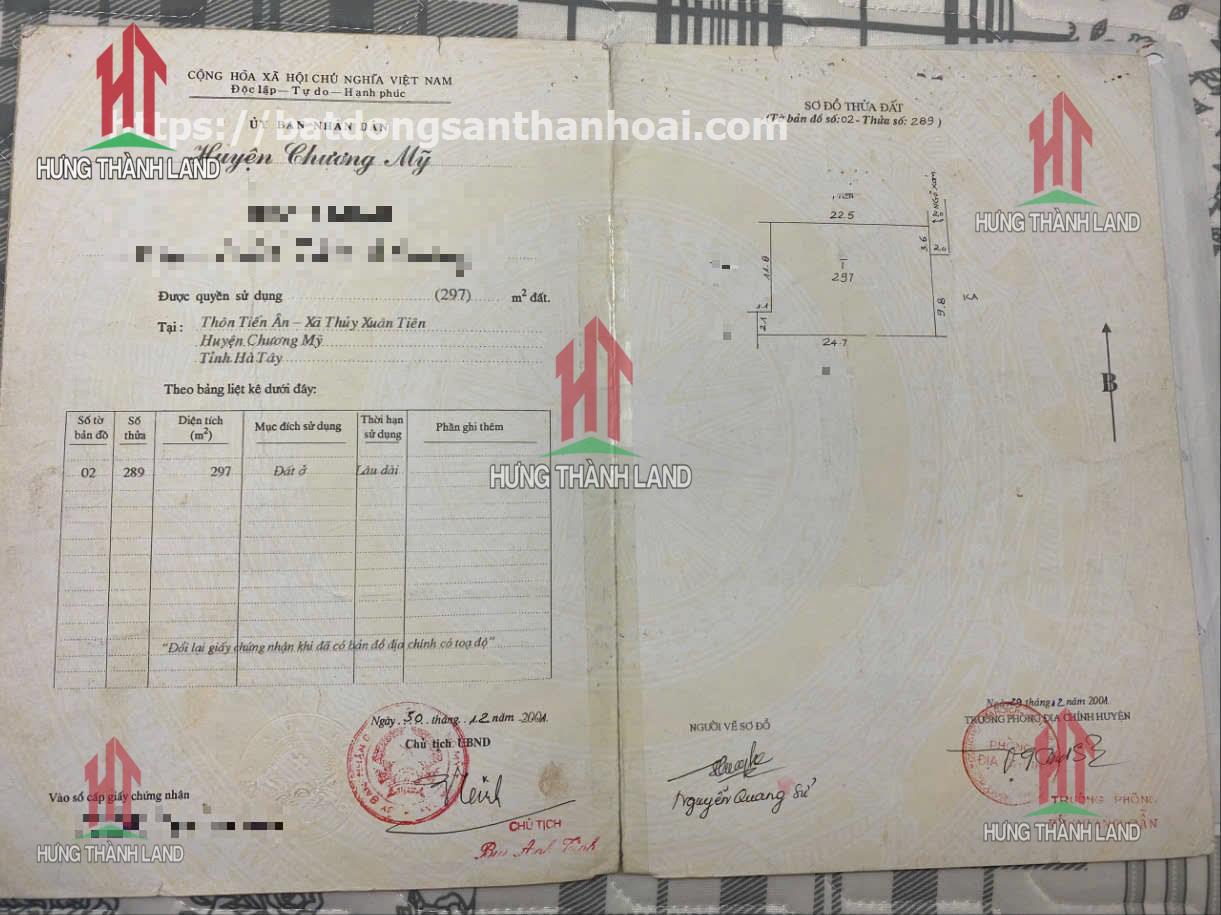 CỘNG HÒA XÃ HỘI CHỦ NGHĨA VIỆT NAM
Độc lập — Tự do — Hạnh phúc
ỦY BAN NHÂN DÂN
https://batdongsanthanhoai.com
Huyện Chương Mỹ
HƯNG THÀNH LAND
Được quyền sử dụng (297) m² đất.
Tại: Thôn Tiến Ân – Xã Thủy Xuân Tiên
Huyện Chương Mỹ
Tỉnh Hà Tây
Theo bảng liệt kê dưới đây:
Số tờ bản đồ Số thửa Diện tích (m²) Mục đích sử dụng Thời hạn sử dụng Phần ghi thêm
02 289 297 Đất ở Lâu dài
HƯNG THÀNH LAND
"Đổi lại giấy chứng nhận khi đã có bản đồ địa chính có toạ độ"
Ngày 30 tháng 12 năm 2001
Chủ tịch UBND
Vào sổ cấp giấy chứng nhận
CHỦ TỊCH
HƯNG THÀNH LAND
SƠ ĐỒ THỬA ĐẤT
(Tờ bản đồ số: 02 - Thửa số: 289)
HƯNG THÀNH LAND
22.5
NGÕ XÓM
3.6
2.0
11.8
T
297
9.8
KA
2.1
24.7
B
NGƯỜI VẼ SƠ ĐỒ
Nguyễn Quang Sử
tháng 12 năm 2001
TRƯỞNG PHÒNG ĐỊA CHÍNH HUYỆN
TRƯỞNG PHÒNG
HƯNG THÀNH LAND